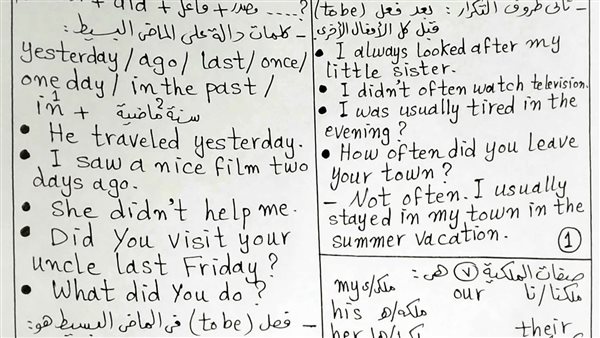 + did + فاعل + مصدر ....?
- كلمات دالة على الماضى البسيط:
yesterday / ago / last / once /
one day / in the past /
in¹ + سنة ماضية²
• He traveled yesterday.
• I saw a nice film two
days ago.
• She didn't help me.
• Did You visit your
uncle last Friday?
• What did You do?
- فعل (to be) فى الماضى البسيط هو:
- تأتى ظروف التكرار: بعد فعل (to be)
قبل كل الأفعال الأخرى
• I always looked after my
little sister.
• I didn't often watch television.
• I was usually tired in the
evening?
• How often did you leave
your town?
- Not often. I usually
stayed in my town in the
summer vacation. (1)
صفات الملكية (٧) هى:
my ملكى our ملكنا/نا
his ملكه/ه
her ملكها/ها their